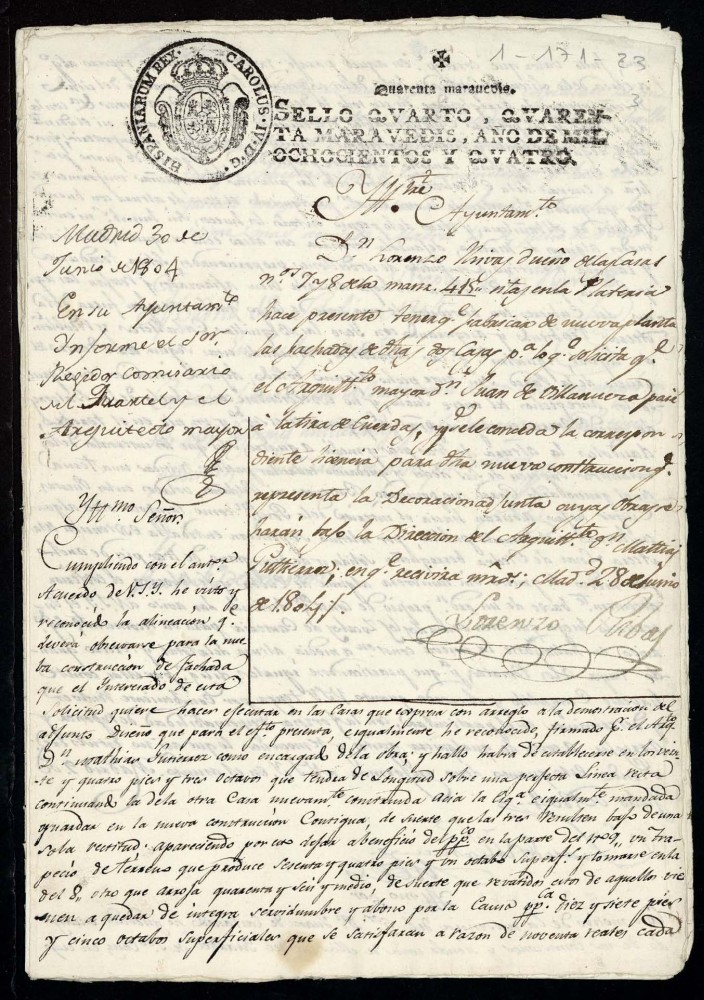 1-171-23
3
HISPANIARUM REX. CAROLUS. IV. D. G.
Quarenta maravedis.
SELLO QVARTO, QVAREN-
TA MARAVEDIS, AÑO DE MIL
OCHOCIENTOS Y QVATRO.
Yttre
Ayuntam.to
D.n Lorenzo Rivas dueño de las Casas
n.os 7 y 8 de la manz. 415 sitas en la Plateria
hace presente tener q.e fabricar de nueva planta
las fachadas de dhas dos Casas p.a lo q.e solicita q.e
el Arquitt.to mayor d.n Juan de Villanueva pase
á la tira de Cuerdas, y q.e se le conceda la correspon-
diente licencia para dha nueva construccion q.e
representa la Decoracion adjunta cuyas obras se
harán bajo la Direccion del Arquitt.to D.n Mathias
Gutierrez; en q.e recivirá mrd.; Mad.d 28 de Junio
de 1804.
Lorenzo Rivas
Madrid 30 de
Junio de 1804
En su Ayuntam.to
Informe el Sor.
Regidor Comisario
del Quartel y el
Arquitecto mayor
Yttmo Señor.
Cumpliendo con el ant.r
Acuerdo de V.S.Y. he visto y
reconocido la alineación q.e
deverá observarse para la nue-
ba construcción de fachada
que el Interesado de esta
solicitud quiere hacer ejecutar en las Casas que expresa con arreglo a la demostracion del
adjunto Diseño que para el efto presenta, e igualmente he reconocido, firmado p.r el Arq.to
D.n Mathias Gutierrez como encargado de la obra; y hallo habrá de establecerse en los vein-
te y quatro pies y tres octavos que tendra de Longitud sobre una perfecta Linea recta
continuando la de la otra Casa nuevam.te construida Acia la e igualm.te mandada
guardar en la nueva construcción Contigua, de suerte que las tres resulten bajo de una
sola rectitud: apareciendo por esto dejar a beneficio del pp.co en la parte del n.o 9, un tra-
pecio de terreno que produce sesenta y quatro pies y un octabo superf.s y tomarse en la
del 8, otro que arroja quarenta y seis y medio, de suerte que revatidos estos de aquellos vie-
nen a quedar de integra servidumbre y abono por la Causa pp.ca diez y siete pies
y cinco octabos superficiales que se satisfaran a razon de noventa reales cada